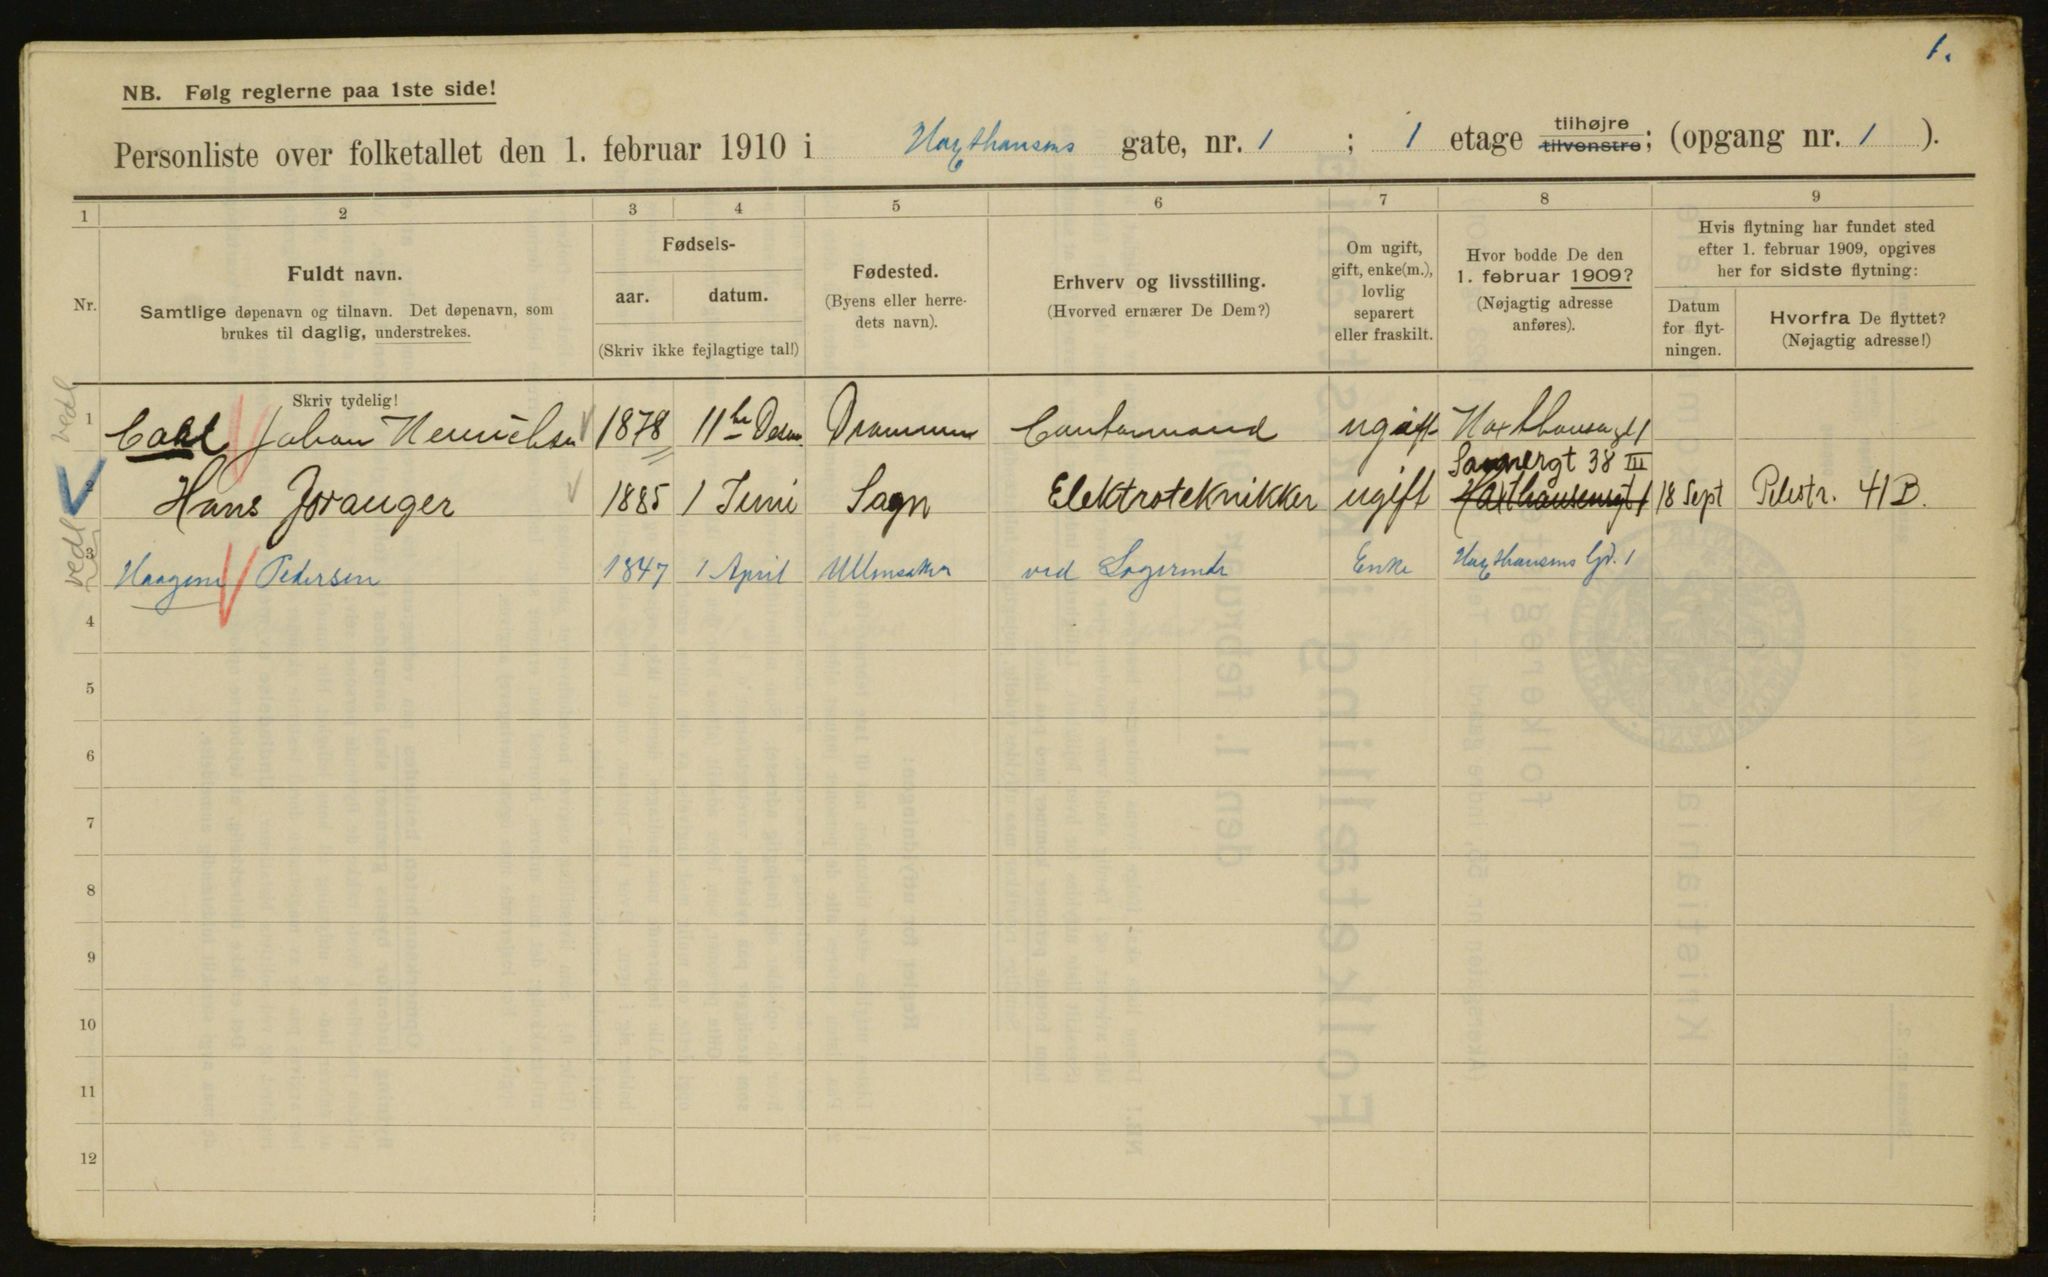 1.
NB. Følg reglerne paa 1ste side!
Personliste over folketallet den 1. februar 1910 i Haxthausens gate, nr. 1 ; 1 etage tilhøjre tilvenstre; (opgang nr. 1 ).
1 2 3 4 5 6 7 8 9
Nr.
Fuldt navn.
Samtlige døpenavn og tilnavn. Det døpenavn, som
brukes til daglig, understrekes.
Skriv tydelig!
Fødsels-
aar. datum.
(Skriv ikke fejlagtige tal!)
Fødested.
(Byens eller herre-
dets navn).
Erhverv og livsstilling.
(Hvorved ernærer De Dem?)
Om ugift,
gift, enke(m.),
lovlig
separert
eller fraskilt.
Hvor bodde De den
1. februar 1909?
(Nøjagtig adresse
anføres).
Hvis flytning har fundet sted
efter 1. februar 1909, opgives
her for sidste flytning:
Datum
for flyt-
ningen.
Hvorfra De flyttet?
(Nøjagtig adresse!)
vedl
1 Carl Johan Henrichsen 1878 11te Desem. Drammen Contormand ugift Haxthausgt 1
Sannergt 38 III
2 Hans Joranger 1885 1 Juni Sogn Elektroteknikker ugift Haxthausensgt 1 18 Sept Pilestr. 41 B.
vedl
3 Haagene Pedersen 1847 1 April Ullensaker ved Logerende Enke Haxthausens Gd. 1
4
5
6
7
8
9
10
11
12